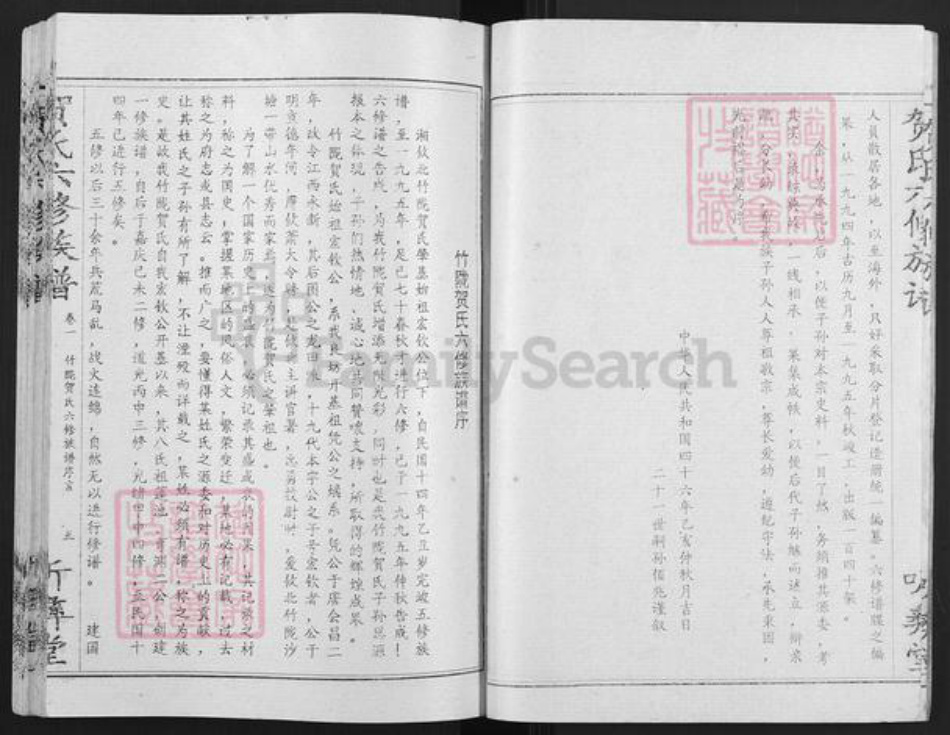 贺氏六修族谱
人员散居各地，以至海外，只好采取分片登记造册统一编纂。六修谱牒之编
纂，从一九九四年古历九月至一九九五年秋竣工，出版一百四十架。
承先启后，以便子孙对本宗史料，一目了然，务须推其源委，考
其实，一线相承，纂集成帙，以使后代子孙继而述立，辩亲
子孙人人尊祖敬宗，尊长爱幼，遵纪守法，承先秉国，
中华人民共和国四十六年乙亥仲秋月吉日
二十一世嗣孙佰尧谨叙
竹陇贺氏六修族谱序
湘攸北竹陇贺氏肇基始祖宏钦公位下，自民国十四年乙丑岁完竣五修族
谱，至一九九五年，足已七十春秋才进行六修，已于一九九五年仲秋告成！
六修谱之告成，为我竹陇贺氏增添无限光彩，同时也是我竹陇贺氏子孙思源
报本之体现，子孙们热情地、诚心地共同赞襄支持，所取得的辉煌成果。
竹陇贺氏始祖宏钦公，系我良坊开基祖凭公之嫡系。凭公于唐会昌二
年，战令江西永新，其后图公之龙田派，十九代本字公之子号宏钦者，公于
明宣德年间，摩攸萧大令聘，赴攸主讲官署，爱攸北竹陇沙
捡一带山水优秀而家焉，遂为竹陇贺氏之肇祖也。
为了解一个国家历史上的盛衰，必须记录其盛成衰的因果，其记录之材
料，称之为国史，掌握某地区的风俗人文，繁荣变迁，某地必有记载，过去
称之为府志或县志云。推而广之，要懂得某姓氏之源委和对历史上的贡献，
让其姓氏之子孙有所了解，不让湮殁而详载之，某姓必须有谱，称之为族
史。是故我竹陇贺氏自我宏钦公开基以来，其八氏祖莲池、青湖二公，创建
一修族谱，自后于嘉庆己未二修，道光丙申三修，光绪甲申四修，至民国十
四年已进行五修矣。
五修以后三十余年兵荒马乱，战火连绵，自然无以进行修谱。建国
贺氏六修族谱
卷一 竹陇贺氏六修族谱序言
FamilySearch